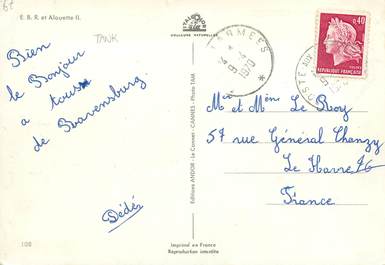 6t
E. B. R. et Alouette II.
TANK
COULEURS NATURELLES
Bien
le Bonjour
a tous
de Ravensburg.
Dédé
108
Editions ANDOR - Le Cannet - CANNES - Photo TAM
Imprimé en France
Reproduction interdite
ARMEES
4 - 4
1970
POSTE AUX
0,40
REPUBLIQUE FRANÇAISE
Mr et Mme Le Roy
57 rue Général Chanzy
Le Havre 76
France